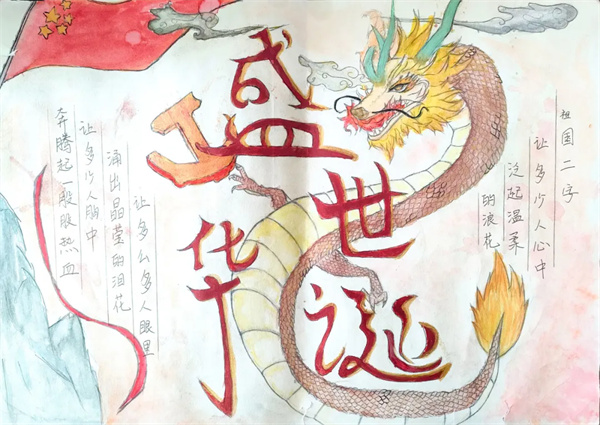 盛世
华诞
祖国二字
让多少人心中
泛起温柔
的浪花
让多么多人眼里
涌出晶莹的泪花
让多少人胸中
奔腾起一股股热血